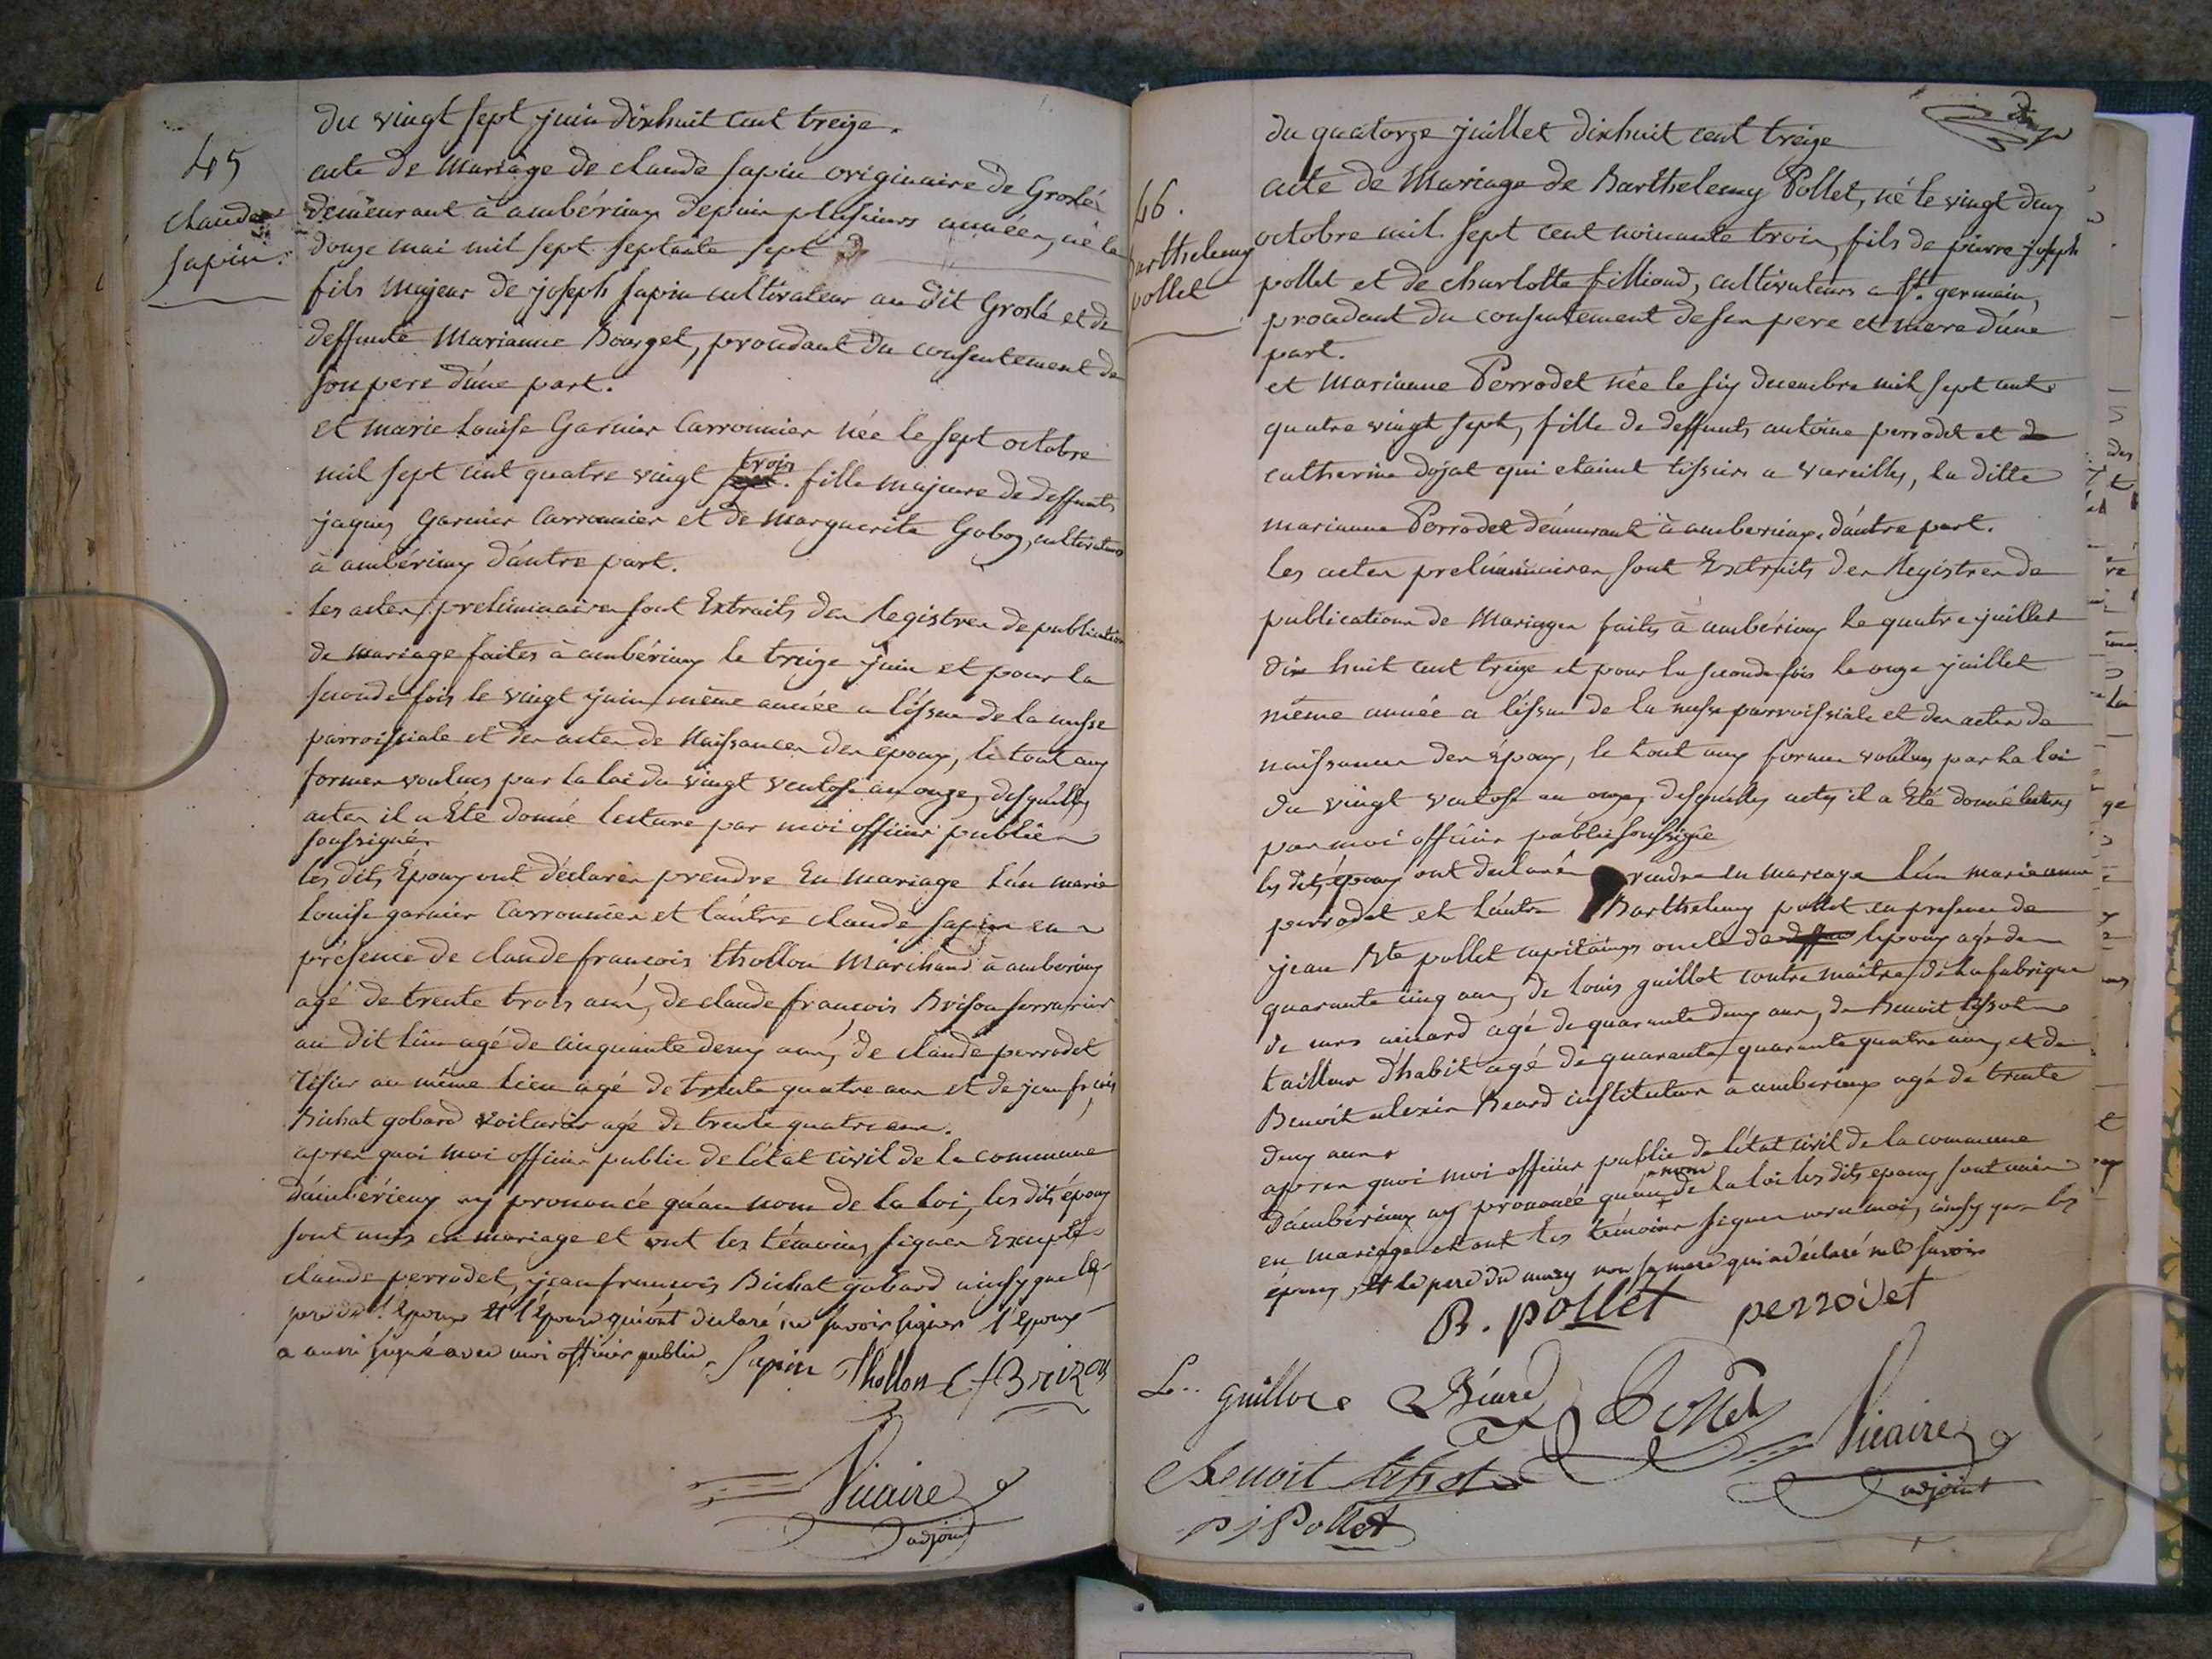 du vingt sept juin dixhuit cent treize.
45
claude
sapin.
acte de Mariage de claude sapin originaire de Groslé
demeurant à ambérieux depuis plusieurs années, né le
douze mai mil sept septante sept
fils majeur de joseph sapin cultivateur au dit Groslé et de
deffunte Marianne Bourget, procedant du consentement de
son pere d'une part.
et marie Louise Garnier Carronnier née le sept octobre
mil sept cent quatre vingt trois. fille majeure de deffunts
jaques Garnier Carronnier et de Marguerite Goboz, cultivateurs
à ambérieux d'autre part.
les actes preliminaires sont Extraits des Registres de publication
de mariage faites à ambérieux le treize juin et pour la
seconde fois le vingt juin même année a l'issue de la messe
parroissiale et des actes de Naissances des époux, le tout aux
formes voulues par la loi du vingt ventose an onze, desquelles
actes il a Été donné lecture par moi officier public
soussigné
les dits Époux ont déclarés prendre En Mariage l'un marie
Louise garnier Carronnier et l'autre claude sapin en
présence de claude francois thollon Marchand à amberieux
agé de trente trois ans, de claude francois Brison serrurier
au dit lieu agé de cinquante deux ans, de claude perrodet
tisier au même lieu agé de trente quatre ans et de jean fr.çois
Bichat gobard voiturier agé de trente quatre ans.
apres quoi moi officier public de l'état civil de la commune
d'ambérieux ay prononcé qu'au nom de la loi, les dits époux
sont unis en mariage et ont les témoins signer Excepté
claude perrodet, jean francois Bichat gobard ainsy que le
pere de l'epoux et l'épouse qui ont declaré ne savoir signer l'epoux
a aussi signé avec moi officier public.
Sapin Thollon Cf Brizon
Vicaire
adjoint
du quatorze juillet dixhuit cent treize
46.
Barthelemy
pollet
acte de Mariage de Barthelemy Pollet, né le vingt deux
octobre mil sept cent noinante trois, fils de pierre joseph
pollet et de charlotte filliond, cultivateurs a St. germain,
procedant du consentement de son pere et mere d'une
part.
et Marianne Perrodet née le six decembre mil sept cent
quatre vingt sept, fille de deffunts antoine perrodet et de
catherine dojat qui etaient tissiers a vareilles, la ditte
marianne Perrodet demeurant à amberieux d'autre part.
les actes preliminaires sont Extraits des Registres de
publications de Mariages faites à ambérieux le quatre juillet
dix huit cent treize et pour la seconde fois le onze juillet
même année a l'issue de la messe parroissiale et des actes de
naissances des Époux, le tout aux formes voullues par la loi
du vingt ventose an onze, desquelles actes il a Été donné lecture
par moi officier public soussigné
les dits époux ont declarés prendre en mariage l'un marianne
perrodet et l'autre Barthelemy pollet en presence de
jean Bte pollet capitaine oncle de l'epoux agé de
quarante cinq ans, de louis guillot contre maître de la fabrique
agé de quarante deux ans, de Benoit tissot
tailleur d'habit agé de quarante quarante quatre ans, et de
Benoit alexis Beard instituteur a amberieux agé de trente
deux ans
apres quoi moi officier public de l'état civil de la commune
d'ambérieux ay prononcé qu'au nom de la loi les dits epoux sont unis
en mariage et ont les témoins signer avec moi, ainsy que les
époux, et le pere du mary non sa mere qui a déclaré ne le savoir
B. pollet perrodet
L.. guillot Béard Pollet Vicaire
adjoint
Benoit tissot
p j Pollet